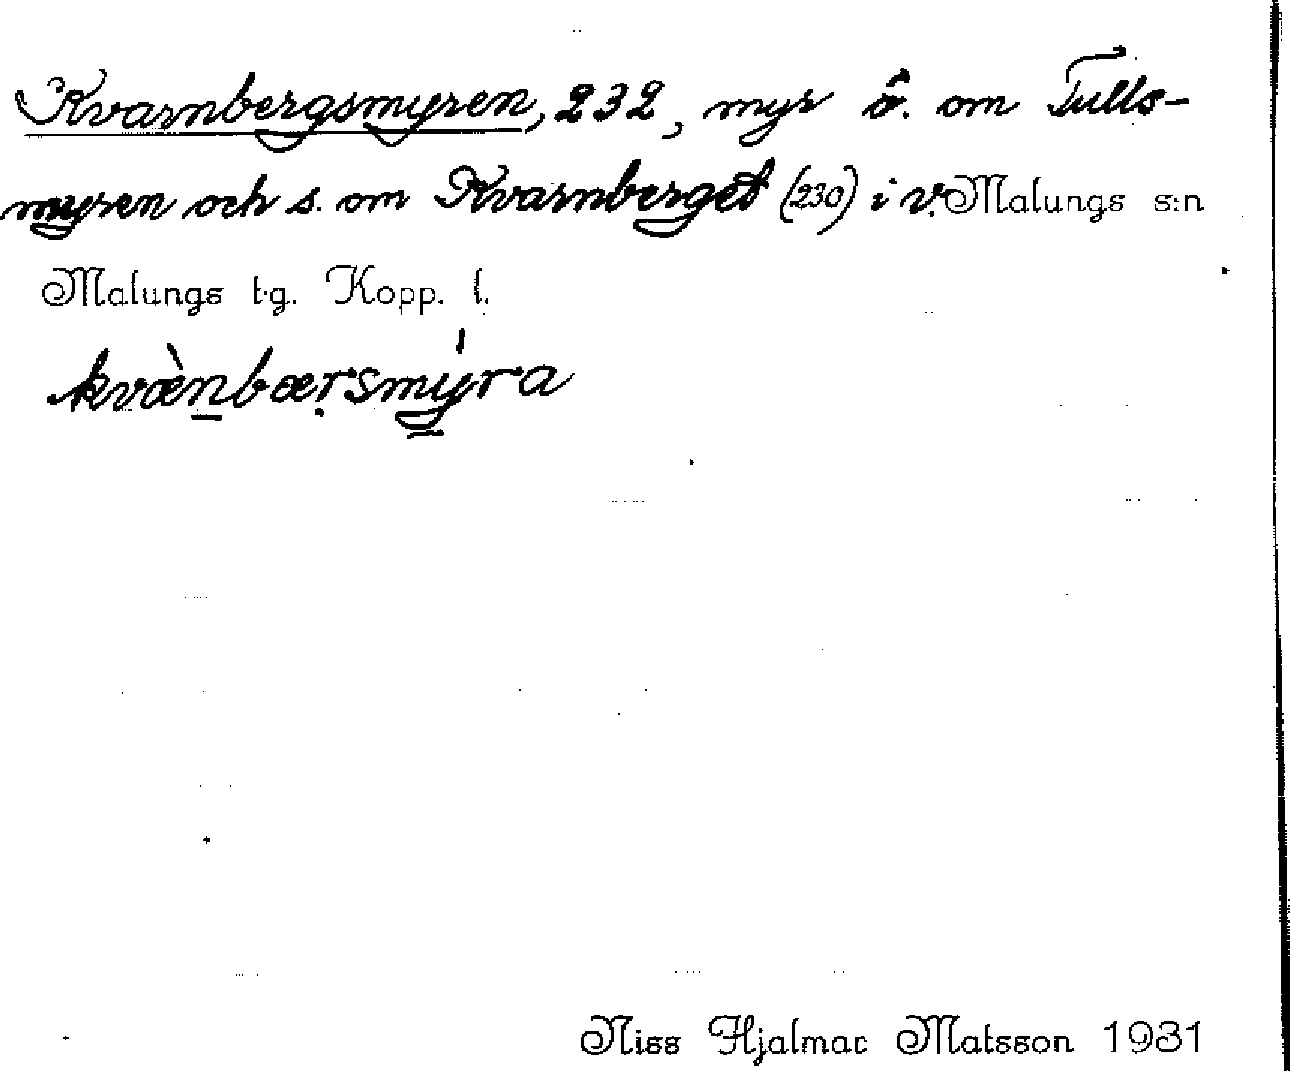 Kvarnbergsmyren, 232, myr ö. om Tulls-
myren och s. om Kvarnberget (230) i v. Malungs s:n
Malungs t.g. Kopp. l.
kvæ̀n̠bær̤smýra
Niss Hjalmar Matsson 1931